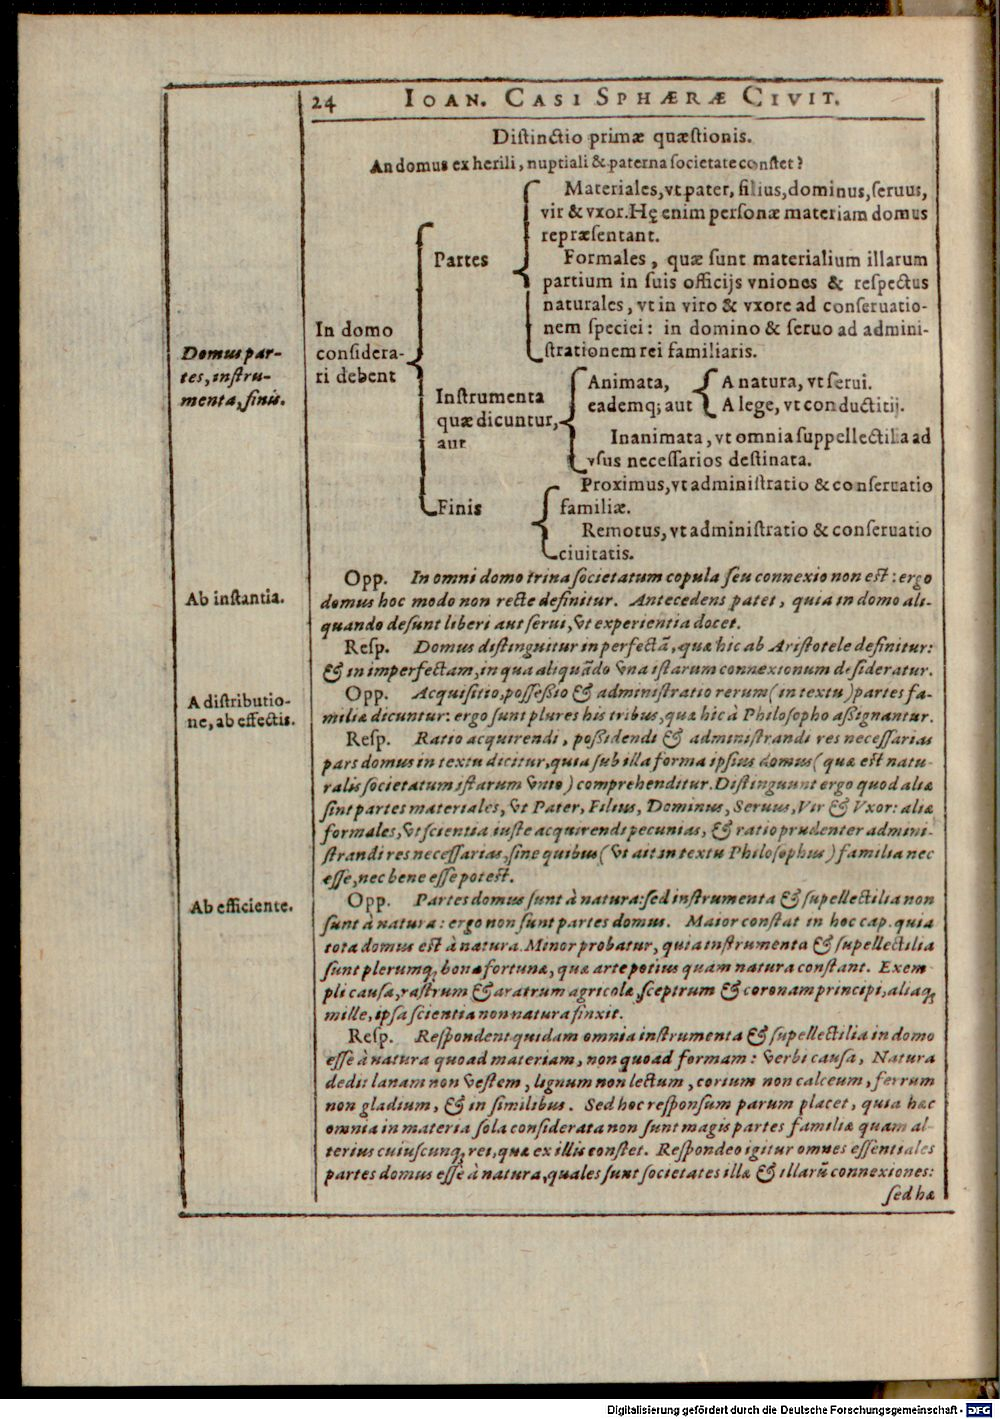 24 IOAN. CASI SPHÆRÆ CIVIT.
Diſtinctio primæ quæſtionis.
An domus ex herili, nuptiali & paterna ſocietate conſtet?
Domus par-
tes, inſtru-
menta, finis.
In domo
conſidera-
ri debent
Partes
Materiales, vt pater, filius, dominus, ſeruus,
vir & vxor. Hę enim perſonæ materiam domus
repræſentant.
Formales, quæ ſunt materialium illarum
partium in ſuis officijs vniones & reſpectus
naturales, vt in viro & vxore ad conſeruatio-
nem ſpeciei: in domino & ſeruo ad admini-
ſtrationem rei familiaris.
Inſtrumenta
quæ dicuntur,
aut
Animata,
eademq; aut
A natura, vt ſerui.
A lege, vt conductitij.
Inanimata, vt omnia ſuppellectilia ad
vſus neceſſarios deſtinata.
Finis
Proximus, vt adminiſtratio & conſeruatio
familiæ.
Remotus, vt adminiſtratio & conſeruatio
ciuitatis.
Ab inſtantia.
Opp. In omni domo trina ſocietatum copula ſeu connexio non eſt: ergo
domus hoc modo non recte definitur. Antecedens patet, quia in domo ali-
quando deſunt liberi aut ſerui, vt experientia docet.
Reſp. Domus diſtinguitur in perfectã, quæ hic ab Ariſtotele definitur:
& in imperfectam, in qua aliquãdo vna iſtarum connexionum deſideratur.
A diſtributio-
ne, ab effectis.
Opp. Acquiſitio, poſſeßio & adminiſtratio rerum (in textu) partes fa-
miliæ dicuntur: ergo ſunt plures his tribus, quæ hic à Philoſopho aßignantur.
Reſp. Ratio acquirendi, poßidendi & adminiſtrandi res neceſſarias
pars domus in textu dicitur, quia ſub illa forma ipſius domus (quæ eſt natu-
ralis ſocietatum iſtarum vnio) comprehenditur. Diſtinguunt ergo quod aliæ
ſint partes materiales, vt Pater, Filius, Dominus, Seruus, Vir & Vxor: aliæ
formales, vt ſcientia iuſte acquirendi pecunias, & ratio prudenter admini-
ſtrandi res neceſſarias, ſine quibus (vt ait in textu Philoſophus) familia nec
eſſe, nec bene eſſe poteſt.
Ab efficiente.
Opp. Partes domus ſunt à natura: ſed inſtrumenta & ſupellectilia non
ſunt à natura: ergo non ſunt partes domus. Maior conſtat in hoc cap. quia
tota domus eſt à natura. Minor probatur, quia inſtrumenta & ſupellectilia
ſunt plerumq; bona fortunæ, quæ arte potius quam natura conſtant. Exem-
pli cauſa, raſtrum & aratrum agricolæ, ſceptrum & coronam principi, aliaq;
mille, ipſa ſcientia non natura finxit.
Reſp. Reſpondent quidam omnia inſtrumenta & ſupellectilia in domo
eſſe à natura quoad materiam, non quoad formam: verbi cauſa, Natura
dedit lanam non veſtem, lignum non lectum, corium non calceum, ferrum
non gladium, & in ſimilibus. Sed hoc reſponſum parum placet, quia hæc
omnia in materia ſola conſiderata non ſunt magis partes familiæ quam al-
terius cuiuſcunq; rei, quæ ex illis conſtet. Reſpondeo igitur omnes eſſentiales
partes domus eſſe à natura, quales ſunt ſocietates illæ & illarũ connexiones:
ſed hæ
Digitalisierung gefördert durch die Deutsche Forschungsgemeinschaft - DFG